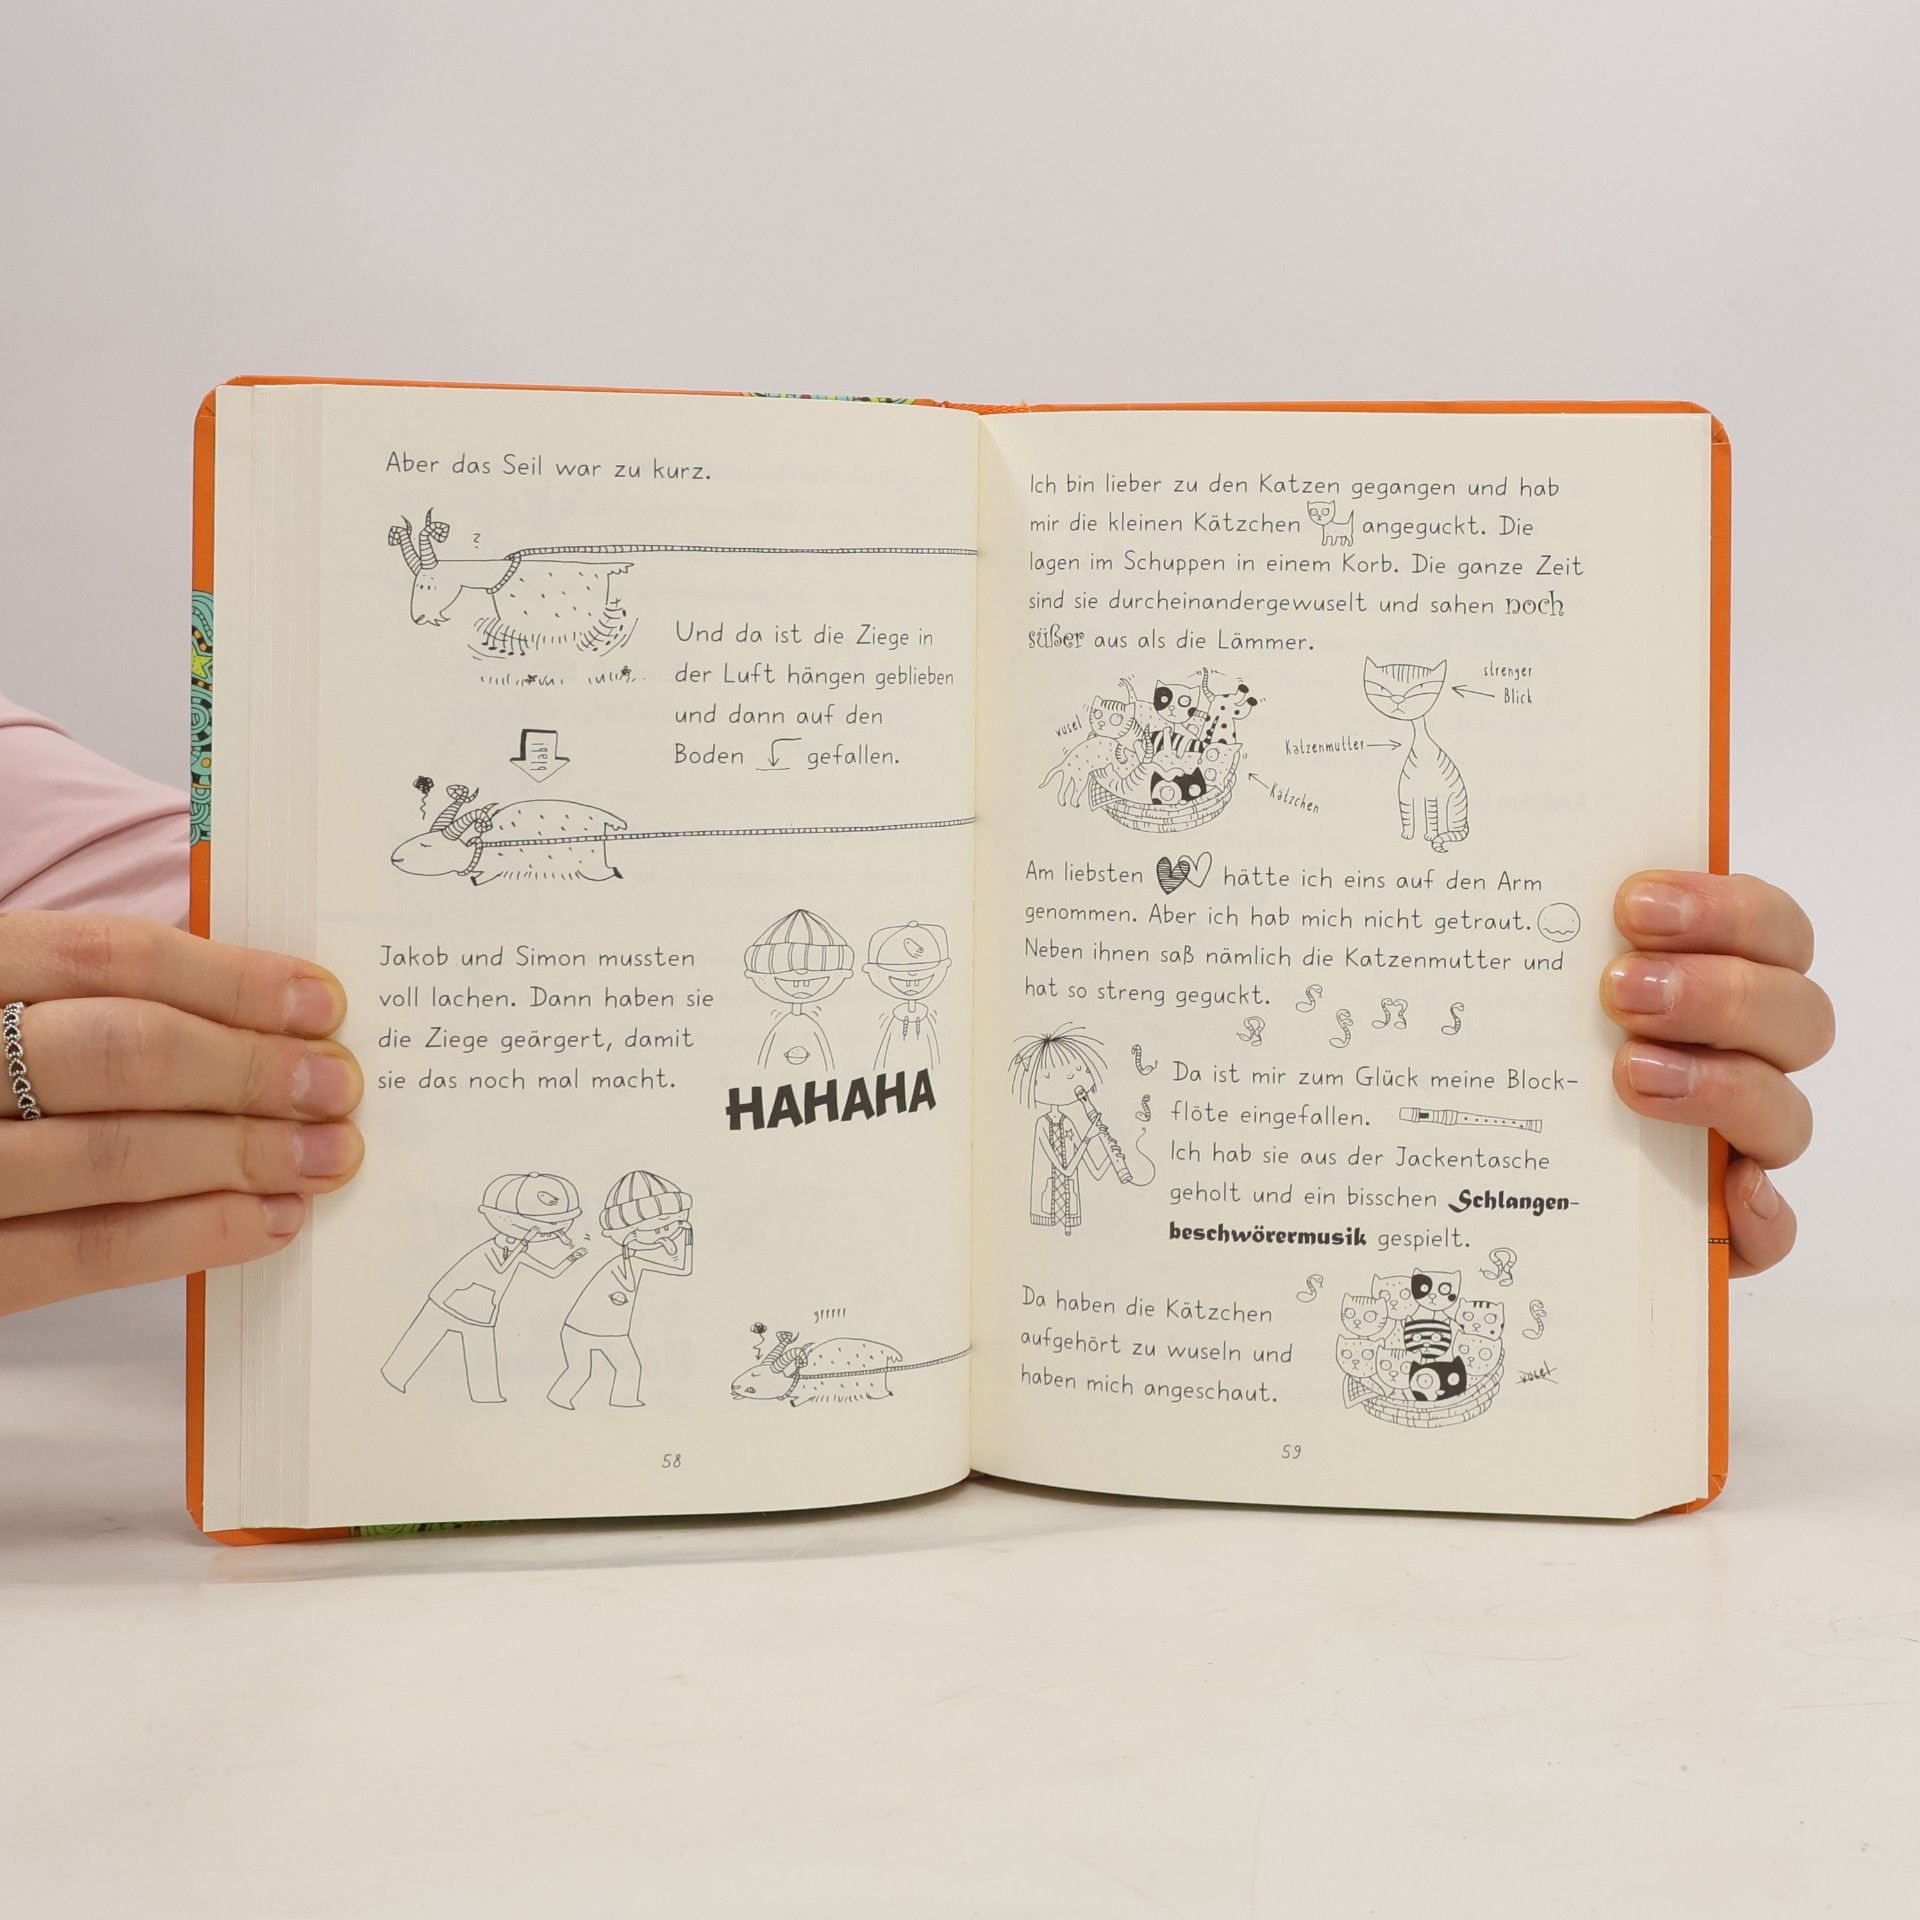 Aber das Seil war zu kurz.
?
Und da ist die Ziege in
der Luft hängen geblieben
und dann auf den
Boden gefallen.
Jakob und Simon mussten
voll lachen. Dann haben sie
die Ziege geärgert, damit
sie das noch mal macht.
HAHAHA
grrrrr
58
Ich bin lieber zu den Katzen gegangen und hab
mir die kleinen Kätzchen angeguckt. Die
lagen im Schuppen in einem Korb. Die ganze Zeit
sind sie durcheinandergewuselt und sahen noch
süßer aus als die Lämmer.
strenger
Blick
wusel
Katzenmutter
Kätzchen
Am liebsten hätte ich eins auf den Arm
genommen. Aber ich hab mich nicht getraut.
Neben ihnen saß nämlich die Katzenmutter und
hat so streng geguckt.
Da ist mir zum Glück meine Block-
flöte eingefallen.
Ich hab sie aus der Jackentasche
geholt und ein bisschen Schlangen-
beschwörermusik gespielt.
Da haben die Kätzchen
aufgehört zu wuseln und
haben mich angeschaut.
wusel
59